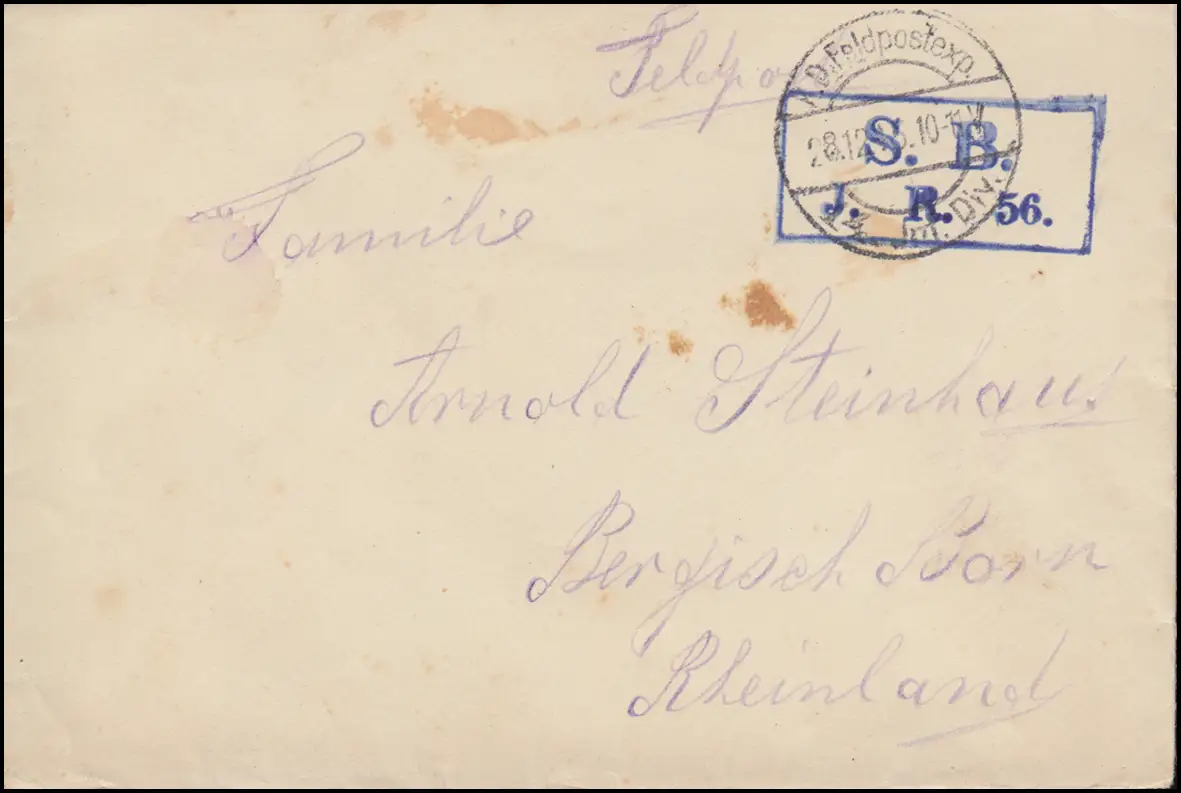 Feldpost
K.D.Feldpostexp.
28.12. 10-11V
14. Inf. Div.
S. B.
J. R. 56.
Familie
Arnold Steinhaus
Bergisch Born
Rheinland